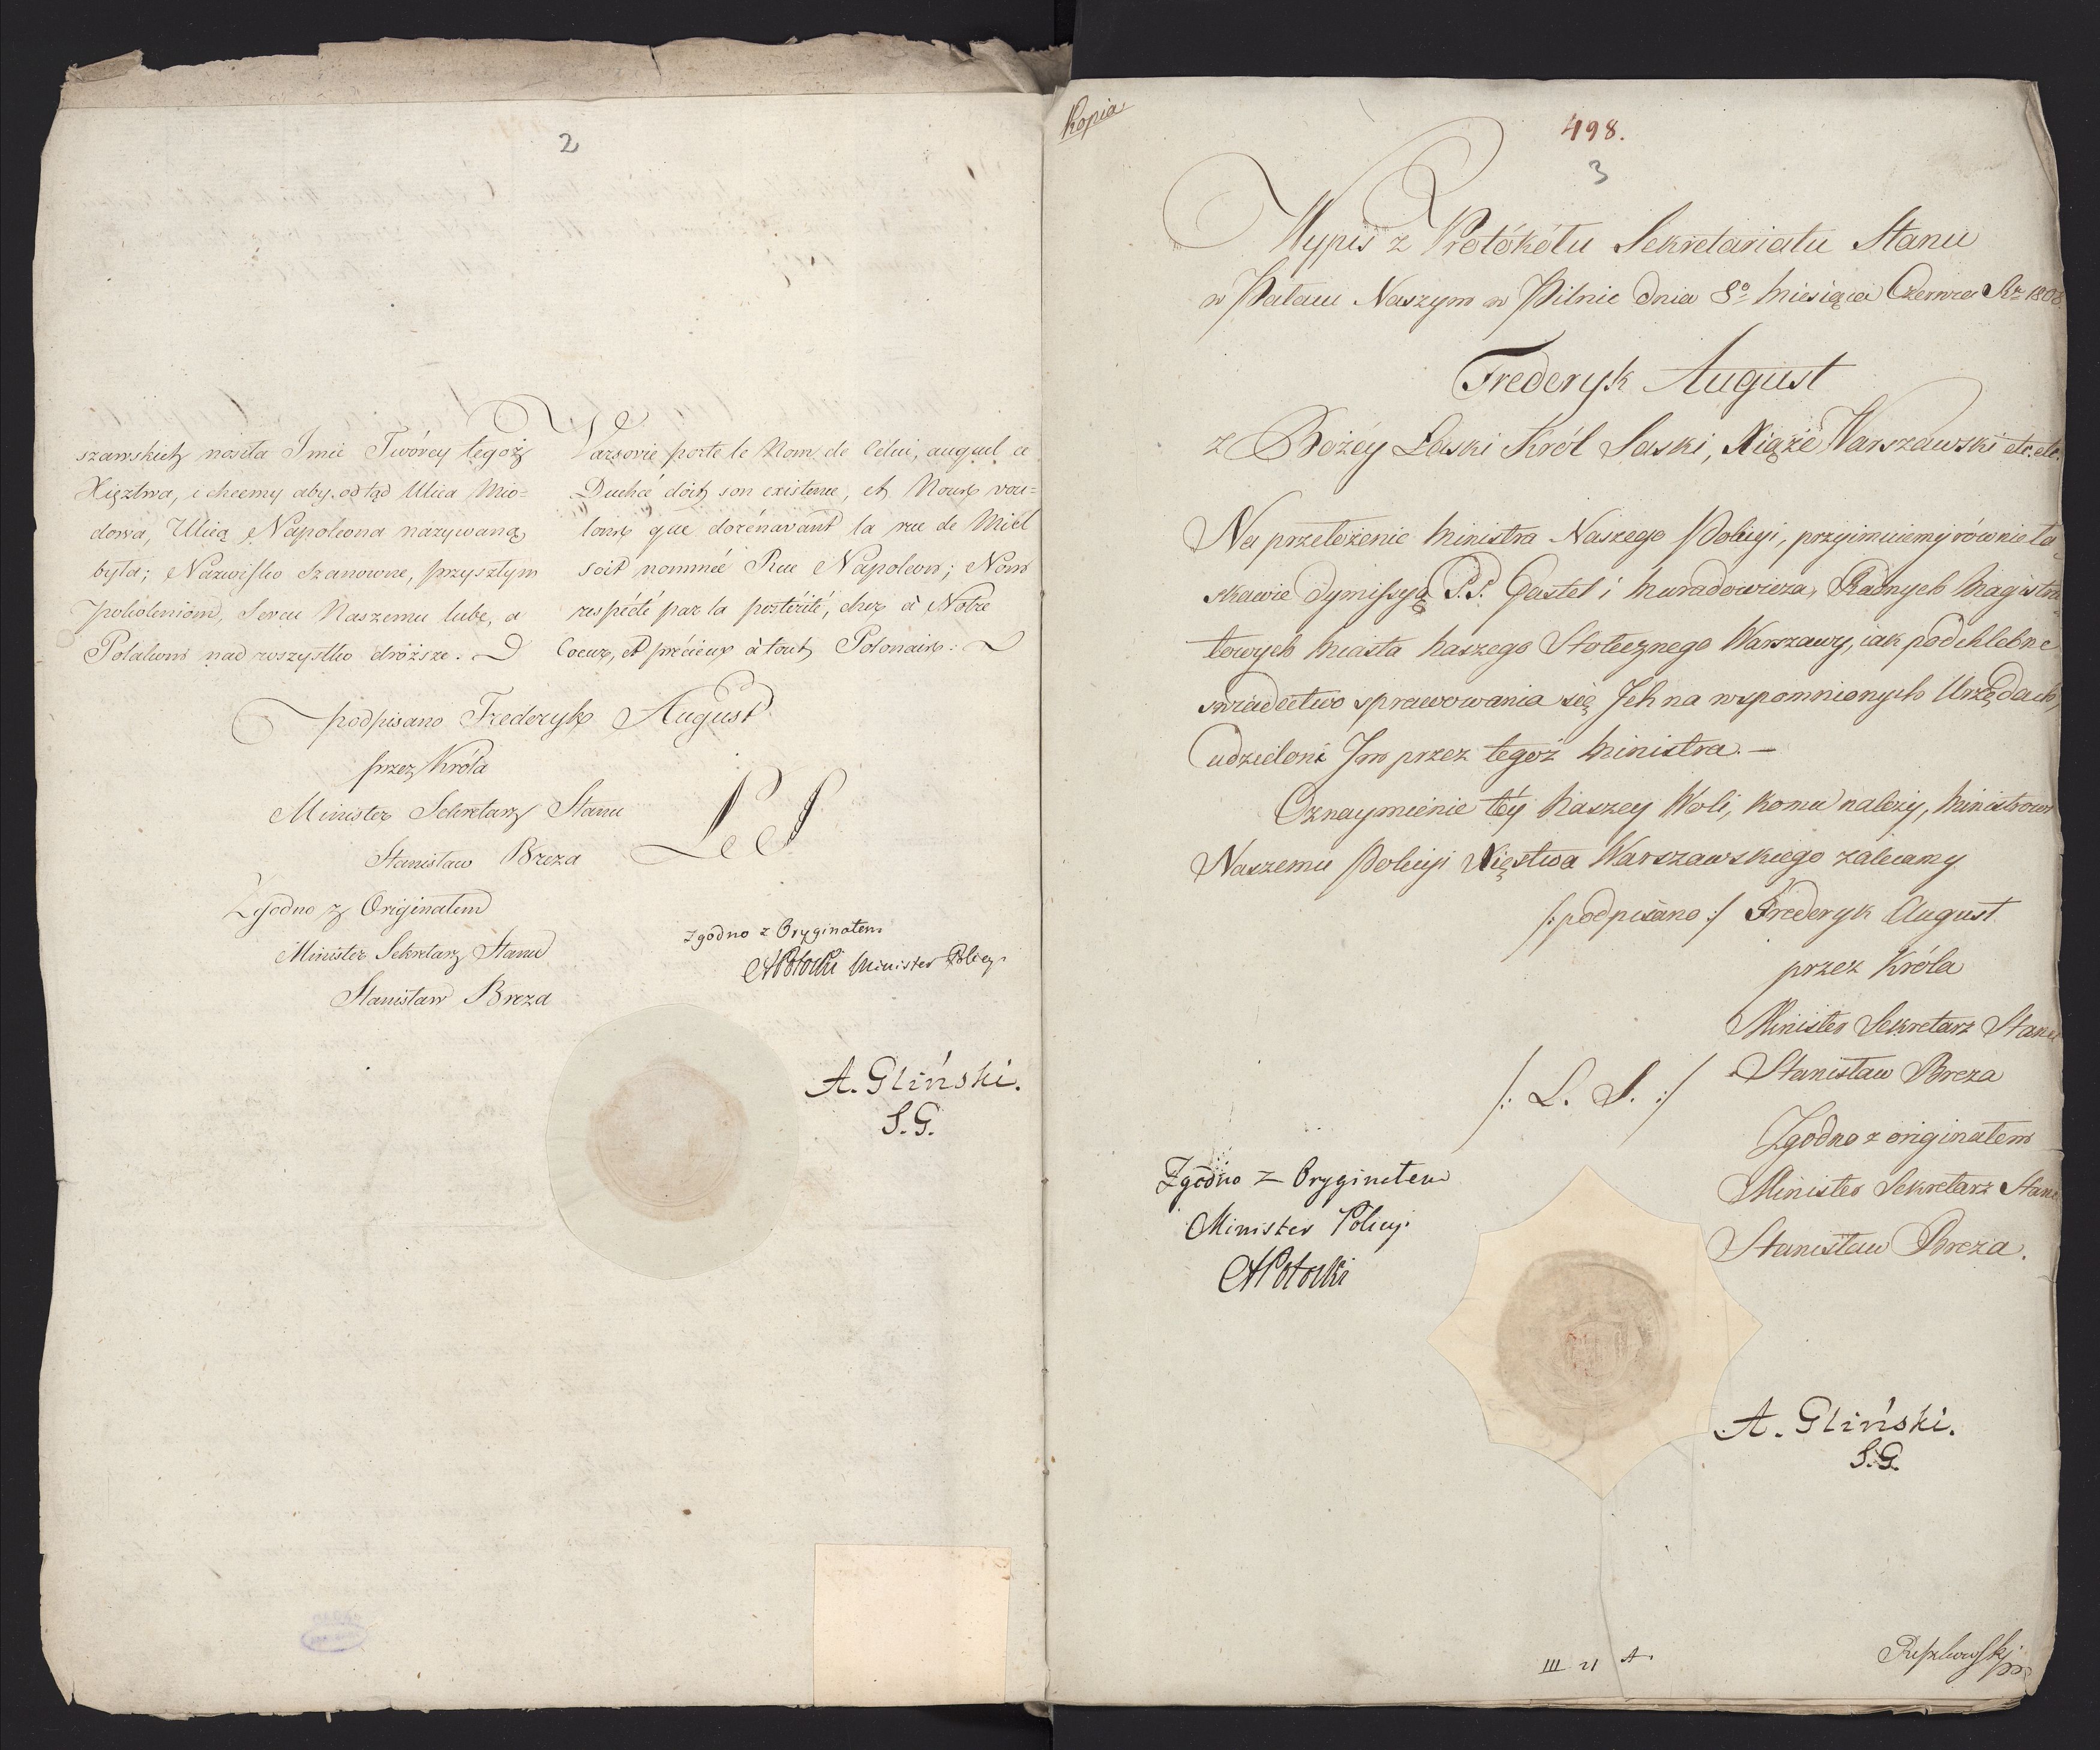 2
szawskich nosiła Imie Twórcy tegoż
Xięztwa, i chcemy aby odtąd Ulica Mio=
dowa, Ulicą Napoleona nazywaną
była; Nazwisko Szanowne, przyszłym
pokoleniom, Sercu Naszemu lube, a
Polakom nad wszystko dróższe.
Varsovie porte le Nom de Celui, auquel ce
Duché doit son existence, et Nous vou=
lons que dorénavant la rue de Miel
soit nommée Rue Napoleon; Nom
respécté par la postérité, cher à Notre
Coeur, et précieux à tout Polonais.
podpisano Frederyk August
przez Króla
Minister Sekretarz Stanu
Stanisław Breza
L S
Zgodno z Originałem
Minister Sekretarz Stanu
Stanisław Breza
zgodno z Oryginałem
APotocki Minister Policyi
A. Gliński.
S.G.
Kopia
498.
3
Wypis z Protókółu Sekretariatu Stanu
w Pałacu Naszym w Pilnic dnia 8º Miesiąca Czerwca Rº 1808
Frederyk August
z Bożéy Łaski Król Saski, Xiąże Warszawski etc. etc.
Na przełożenie Ministra Naszego Policyi, przyimuiemy równie ła
skawie dymissyą P.P. Gastel i Muradowicza, Radnych Magistra
towych Miasta Naszego Stołecznego Warszawy, iak podchlebne
świadectwo sprawowania się Ich na wspomnionych Urzędach,
udzielone Im przez tegoż Ministra. —
Oznaymienie téy Naszey Woli, komu należy, Ministrowi
Naszemu Policyi Xięstwa Warszawskiego zalecamy
/: podpisano :/ Frederyk August
przez Króla
Minister Sekretarz Stanu
/: L. S. :/ Stanisław Breza
Zgodno z originałem
Minister Sekretarz Stanu
Stanisław Breza.
Zgodno z Oryginałem
Minister Policyi
APotocki
A. Gliński.
S.G.
III 21 A.